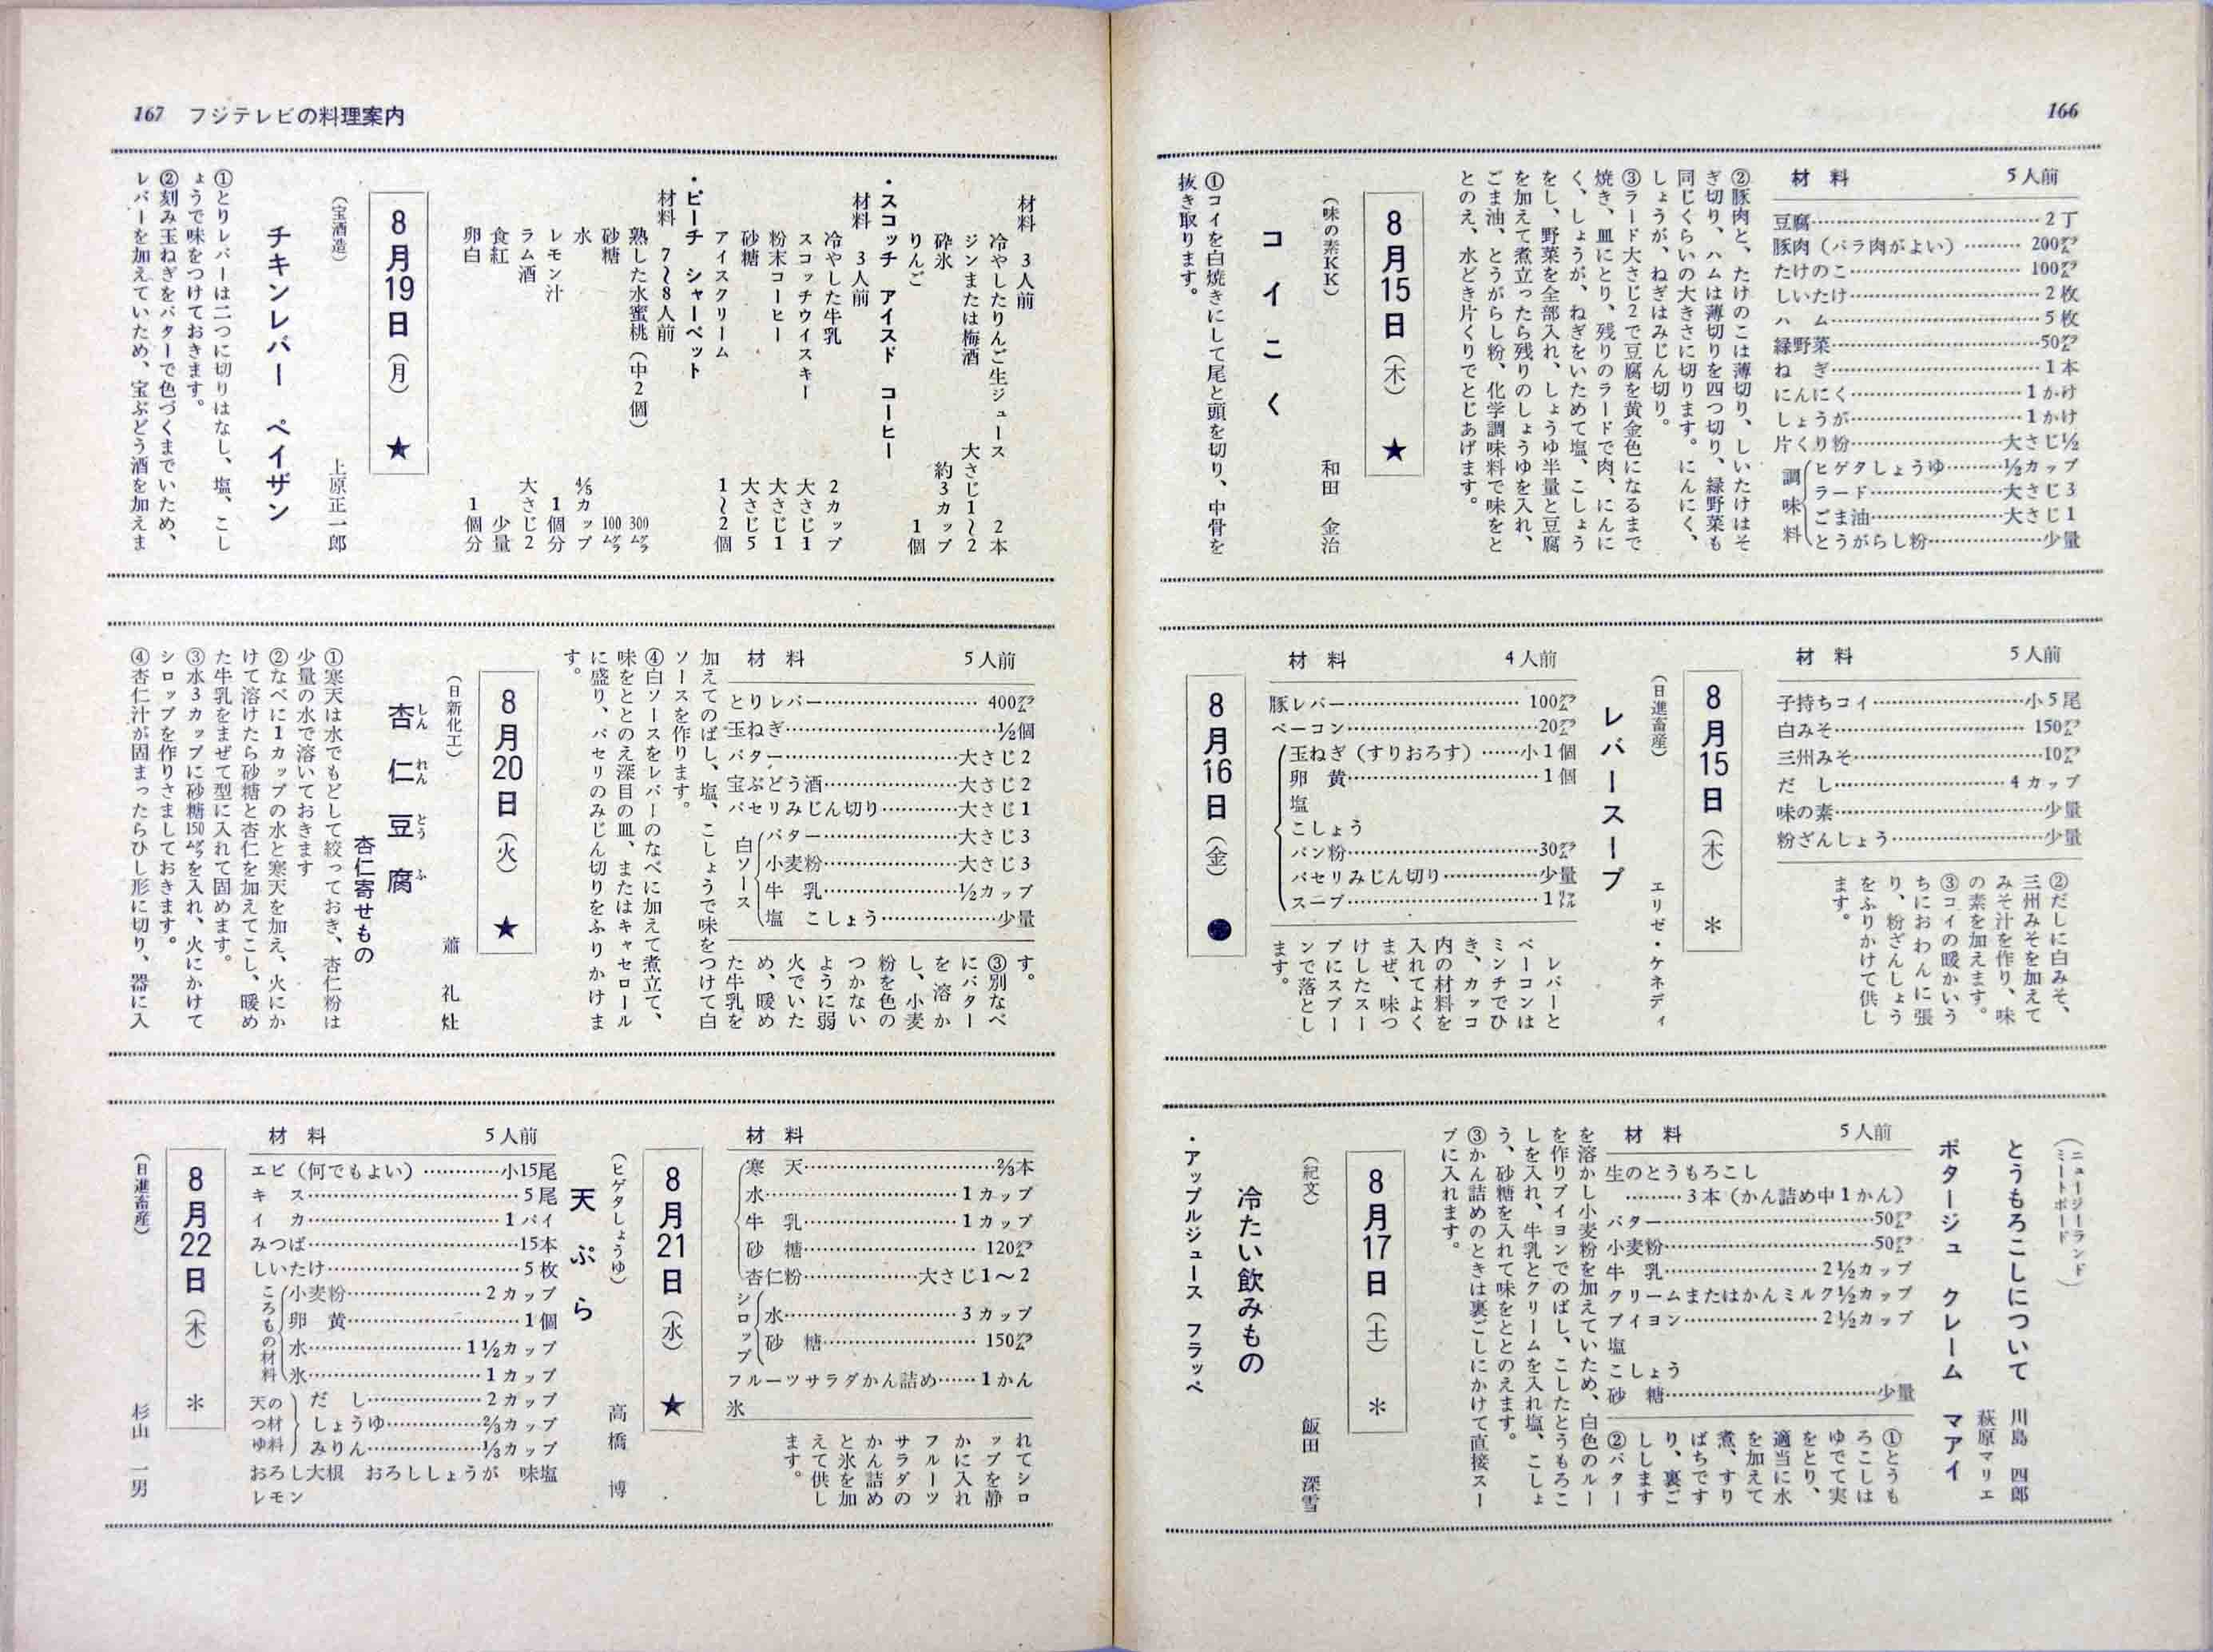 166
材料　5人前
豆腐……2丁
豚肉（バラ肉がよい）……200㌘
たけのこ……100㌘
しいたけ……2枚
ハム……5枚
緑野菜……50㌘
ねぎ……1本
にんにく……1かけ
しょうが……1かけ
片くり粉……大さじ½
調味料
ヒゲタしょうゆ……½カップ
ラード……大さじ3
ごま油……大さじ1
とうがらし粉……少量
②豚肉と、たけのこは薄切り、しいたけはそ
ぎ切り、ハムは薄切りを四つ切り、緑野菜も
同じくらいの大きさに切ります。にんにく、
しょうが、ねぎはみじん切り。
③ラード大さじ2で豆腐を黄金色になるまで
焼き、皿にとり、残りのラードで肉、にんに
く、しょうが、ねぎをいためて塩、こしょう
をし、野菜を全部入れ、しょうゆ半量と豆腐
を加えて煮立ったら残りのしょうゆを入れ、
ごま油、とうがらし粉、化学調味料で味をと
とのえ、水どき片くりでとじあげます。
8月15日（木）★
（味の素KK）　和田　金治
コイこく
①コイを白焼きにして尾と頭を切り、中骨を
抜き取ります。
材料　5人前
子持ちコイ……小5尾
白みそ……150㌘
三州みそ……10㌘
だし……4カップ
味の素……少量
粉ざんしょう……少量
②だしに白みそ、
三州みそを加えて
みそ汁を作り、味
の素を加えます。
③コイの暖かいう
ちにおわんに張
り、粉ざんしょう
をふりかけて供し
ます。
8月15日（木）＊
（日進畜産）　エリゼ・ケネディ
レバースープ
材料　4人前
豚レバー……100㌘
ベーコン……20㌘
玉ねぎ（すりおろす）……小1個
卵黄……1個
塩
こしょう
パン粉……30㌘
パセリみじん切り……少量
スープ……1㍑
レバーと
ベーコンは
ミンチでひ
き、カッコ
内の材料を
入れてよく
まぜ、味つ
けしたスー
プにスプー
ンで落とし
ます。
8月16日（金）●
（ニュージーランド
ミートボード）
とうもろこしについて　川島　四郎
萩原マリエ
ポタージュ　クレーム　マアイ
材料　5人前
生のとうもろこし
………3本（かん詰め中1かん）
バター……50㌘
小麦粉……50㌘
牛乳……2½カップ
クリームまたはかんミルク½カップ
ブイヨン……2½カップ
塩
こしょう
砂糖……少量
①とうも
ろこしは
ゆでて実
をとり、
適当に水
を加えて
煮、すり
ばちです
り、裏ご
しします
②バター
を溶かし小麦粉を加えていため、白色のルー
を作りブイヨンでのばし、こしたとうもろこ
しを入れ、牛乳とクリームを入れ塩、こしょ
う、砂糖を入れて味をととのえます。
③かん詰めのときは裏ごしにかけて直接スー
プに入れます。
8月17日（土）＊
（紀文）　飯田　深雪
冷たい飲みもの
・アップルジュース　フラッペ
167　フジテレビの料理案内
材料　3人前
冷やしたりんご生ジュース　2本
ジンまたは梅酒　大さじ1〜2
砕氷　約3カップ
りんご　1個
・スコッチ　アイスド　コーヒー
材料　3人前
冷やした牛乳　2カップ
スコッチウイスキー　大さじ1
粉末コーヒー　大さじ1
砂糖　大さじ5
アイスクリーム　1〜2個
・ピーチ　シャーベット
材料　7〜8人前
熟した水蜜桃（中2個）　300㌘
砂糖　100㌘
水　⅘カップ
レモン汁　1個分
ラム酒　大さじ2
食紅　少量
卵白　1個分
8月19日（月）★
（宝酒造）　上原正一郎
チキンレバー　ペイザン
①とりレバーは二つに切りはなし、塩、こし
ょうで味をつけておきます。
②刻み玉ねぎをバターで色づくまでいため、
レバーを加えていため、宝ぶどう酒を加えま
材料　5人前
とりレバー……400㌘
玉ねぎ……½個
バター……大さじ2
宝ぶどう酒……大さじ2
パセリみじん切り……大さじ1
白ソース
バター……大さじ3
小麦粉……大さじ3
牛乳……½カップ
塩　こしょう……少量
す。
③別なべ
にバター
を溶か
し、小麦
粉を色の
つかない
ように弱
火でいた
め、暖め
た牛乳を
加えてのばし、塩、こしょうで味をつけて白
ソースを作ります。
④白ソースをレバーのなべに加えて煮立て、
味をととのえ深目の皿、またはキャセロール
に盛り、パセリのみじん切りをふりかけま
す。
8月20日（火）★
（日新化工）　蕭　礼　灶
杏仁豆腐
しんれんとうふ
杏仁寄せもの
①寒天は水でもどして絞っておき、杏仁粉は
少量の水で溶いておきます
②なべに1カップの水と寒天を加え、火にか
けて溶けたら砂糖と杏仁を加えてこし、暖め
た牛乳をまぜて型に入れて固めます。
③水3カップに砂糖150㌘を入れ、火にかけて
シロップを作りさましておきます。
④杏仁汁が固まったらひし形に切り、器に入
材料
寒天……⅔本
水……1カップ
牛乳……1カップ
砂糖……120㌘
杏仁粉……大さじ1〜2
シロップ
水……3カップ
砂糖……150㌘
フルーツサラダかん詰め……1かん
氷
れてシロ
ップを静
かに入れ
フルーツ
サラダの
かん詰め
と氷を加
えて供し
ます。
8月21日（水）★
（ヒゲタしょうゆ）　高橋　博
天ぷら
材料　5人前
エビ（何でもよい）……小15尾
キス……5尾
イカ……1パイ
みつば……15本
しいたけ……5枚
ころもの材料
小麦粉……2カップ
卵黄……1個
水……1½カップ
氷……1カップ
天つゆの材料
だし……2カップ
しょうゆ……⅔カップ
みりん……⅓カップ
おろし大根　おろししょうが　味塩
レモン
8月22日（木）＊
（日進畜産）　杉山　一男